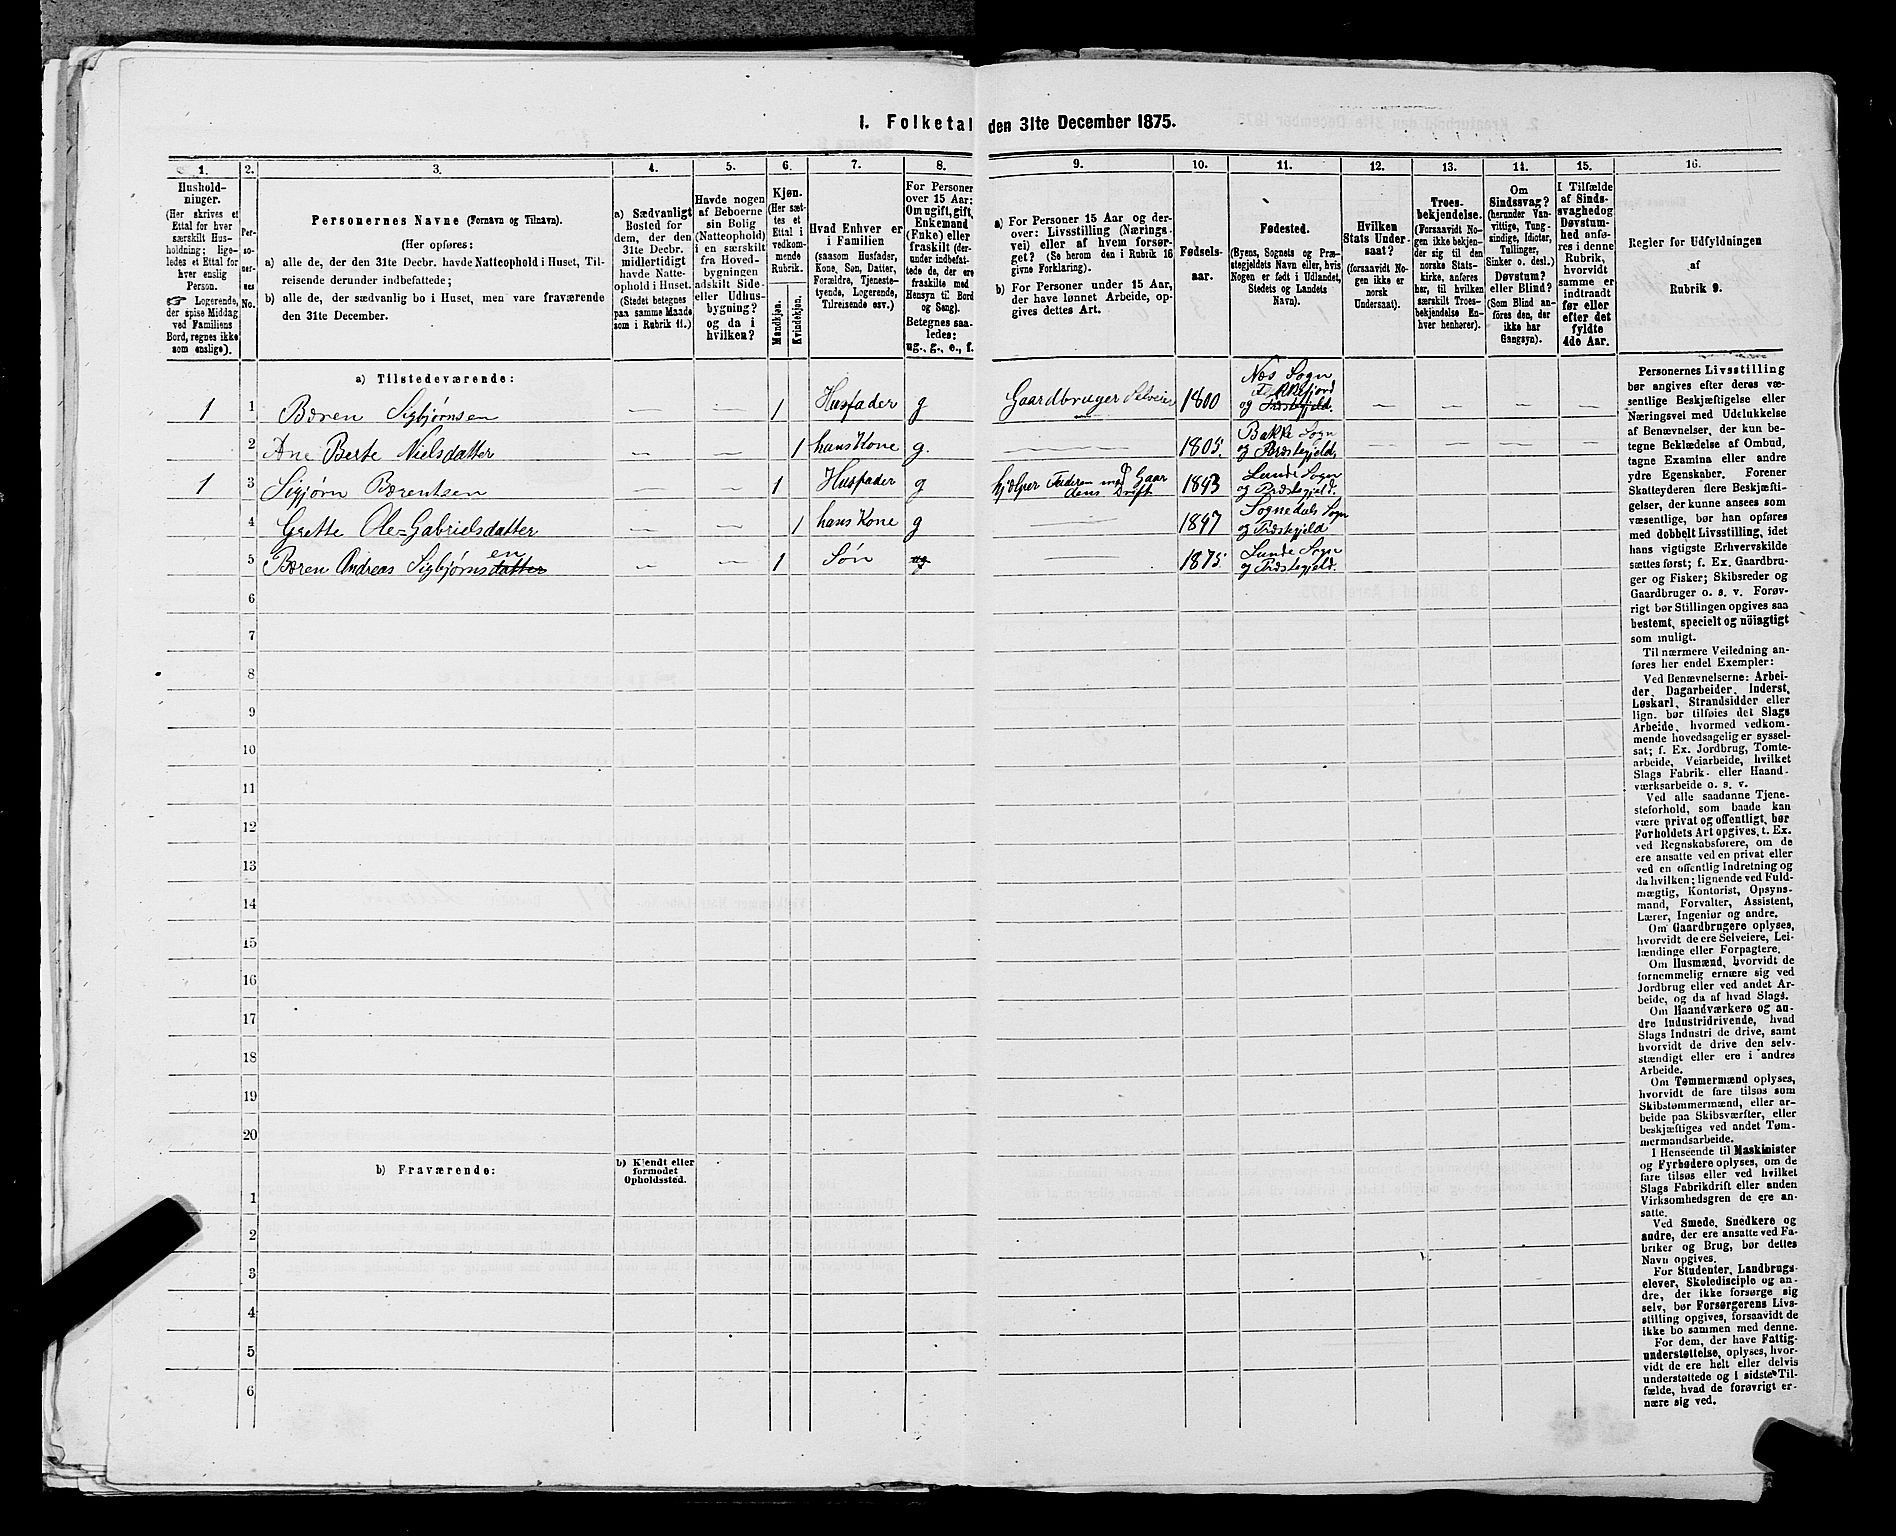 I. Folketal den 31te December 1875.
1. 2. 3. 4. 5. 6. 7. 8. 9. 10. 11. 12. 13. 14. 15. 16.
Hushold-
ninger.
(Her skrives et
Ettal for hver
særskilt Hus-
holdning; lige-
ledes et Ettal for
hver enslig
Person.
☞ Logerende,
der spise Middag
ved Familiens
Bord, regnes ikke
som enslige).
Per-
so-
ner-
nes
No.
Personernes Navne (Fornavn og Tilnavn).
(Her opføres:
a) alle de, der den 31te Decbr. havde Natteophold i Huset, Til-
reisende derunder indbefattede;
b) alle de, der sædvanlig bo i Huset, men vare fraværende
den 31te December.
a) Sædvanligt
Bosted for
dem, der den
31te Decbr.
midlertidigt
havde Natte-
ophold i Huset.
(Stedet betegnes
paa samme Maade
som i Rubrik 11.)
Havde nogen
af Beboerne
sin Bolig
(Natteophold)
i en særskilt
fra Hoved-
bygningen
adskilt Side-
eller Udhus-
bygning?
og da i
hvilken?
Kjøn.
(Her sæt-
tes et
Ettal i
vedkom-
mende
Rubrik.
Mandkjøn.
Kvindekjøn.
Hvad Enhver er
i Familien
(saasom Husfader,
Kone, Søn, Datter,
Forældre, Tjeneste-
tyende, Logerende,
Tilreisende osv.)
For Personer
over 15 Aar:
Om ugift, gift,
Enkemand
(Enke) eller
fraskilt (der-
under indbefat-
tede de, der ere
fraskilte med
Hensyn til Bord
og Seng).
Betegnes saa-
ledes:
ug., g., e., f.
a) For Personer 15 Aar og der-
over: Livsstilling (Nærings-
vei) eller af hvem forsør-
get? (Se herom den i Rubrik 16
givne Forklaring).
b) For Personer under 15 Aar,
der have lønnet Arbeide, op-
gives dettes Art.
Fødsels-
aar.
Fødested.
(Byens, Sognets og Præ-
stegjeldets Navn eller, hvis
Nogen er født i Udlandet,
Stedets og Landets
Navn).
Hvilken
Stats Under-
saat?
(forsaavidt No-
gen ikke er
norsk
Undersaat).
Troes-
bekjendelse.
(Forsaavidt No-
gen ikke bekjen-
der sig til den
norske Stats-
kirke, anføres
her, til hvilken
særskilt Troes-
bekjendelse En-
hver henhører).
Om
Sindssvag?
(herunder Van-
vittige, Tung-
sindige, Idioter,
Tullinger,
Sinker o. desl.)
Døvstum?
eller Blind?
(Som Blind an-
føres den, der
ikke har
Gangsyn).
I Tilfælde
af Sinds-
svaghed og
Døvstum-
hed anfø-
res i denne
Rubrik,
hvorvidt
samme er
indtraadt
før eller
efter det
fyldte
4de Aar.
Regler for Udfyldningen
af
Rubrik 9.
a) Tilstedeværende:
1 1 Bæren Sigbjørnsen — — 1 Husfader g Gaardbruger Selveier 1800 Næs Sogn
og Præstegjeld. — — — —
2 Ane Berte Nielsdatter — — 1 hans Kone g. — 1805. Bakke Sogn
og Præstegjeld. — — — —
1 3 Sigjørn Bærentsen — — 1 Husfader g hjælper Faderen med Gaar
dens Drift 1843 Lunde Sogn
og Præstegjeld.
4 Grette Ole=Gabrielsdatter — — 1 hans Kone g — 1847 Sognedals Sogn
og Præstegjeld
5 Bæren Andreas Sigbjørnsdatter en — — 1 Søn ug 1875 Lunde Sogn
og Præstegjeld.
6
7
8
9
10
11
12
13
14
15
16
17
18
19
20
b) Fraværende:
b) Kjendt eller
formodet
Opholdssted.
1
2
3
4
5
6
Personernes Livsstilling
bør angives efter deres væ-
sentlige Beskjæftigelse eller
Næringsvei med Udelukkelse
af Benævnelser, der kun be-
tegne Beklædelse af Ombud,
tagne Examina eller andre
ydre Egenskaber. Forener
Skatteyderen flere Beskjæfti-
gelser, der kunne ansees som
væsentlige, bør han opføres
med dobbelt Livsstilling, idet
hans vigtigste Erhvervskilde
sættes først; f. Ex. Gaardbru-
ger og Fisker; Skibsreder og
Gaardbruger o. s. v. Forøv-
rigt bør Stillingen opgives saa
bestemt, specielt og nöiagtigt
som muligt.
Til nærmere Veiledning an-
føres her endel Exempler:
Ved Benævnelserne: Arbei-
der, Dagarbeider, Inderst,
Løskarl, Strandsidder eller
lign. bør tilføies det Slags
Arbeide, hvormed vedkom-
mende hovedsagelig er syssel-
sat; f. Ex. Jordbrug, Tomte-
arbeide, Veiarbeide, hvilket
Slags Fabrik- eller Haand-
værksarbeide o. s. v.
Ved alle saadanne Tjene-
steforhold, som baade kan
være privat og offentligt, bør
Forholdets Art opgives, t. Ex.
ved Regnskabsførere, om de
ere ansatte ved en privat eller
ved en offentlig Indretning og
da hvilken; lignende ved Fuld-
mægtig, Kontorist, Opsyns-
mand, Forvalter, Assistent,
Lærer, Ingeniør og andre.
Om Gaardbrugere oplyses,
hvorvidt de ere Selveiere, Lei-
lændinge eller Forpagtere.
Om Husmænd, hvorvidt de
fornemmelig ernære sig ved
Jordbrug eller ved andet Ar-
beide, og da af hvad Slags.
Om Haandværkere og an-
dre Industridrivende, hvad
Slags Industri de drive, samt
hvorvidt de drive den selv-
stændigt eller ere i andres
Arbeide.
Om Tømmermænd oplyses,
hvorvidt de fare tilsøs som
Skibstømmermænd, eller ar-
beide paa Skibsværfter, eller
beskjæftiges ved andet Tøm-
mermandsarbeide.
I Henseende til Maskinister
og Fyrbødere oplyses, om de
fare tilsøs eller ved hvilket
Slags Fabrikdrift eller anden
Virksomhedsgren de ere an-
satte.
Ved Smede, Snedkere og
andre, der ere ansatte ved Fa-
briker og Brug, bør dettes
Navn opgives.
For Studenter, Landbrugs-
elever, Skoledisciple og an-
dre, der ikke forsørge sig
selv, bør Forsørgerens Livs-
stilling opgives, forsaavidt de
ikke bo sammen med denne.
For dem, der have Fattig-
understøttelse, oplyses, hvor-
vidt de ere helt eller delvis
understøttede og i sidste Til-
fælde, hvad de forøvrigt er-
nære sig ved.